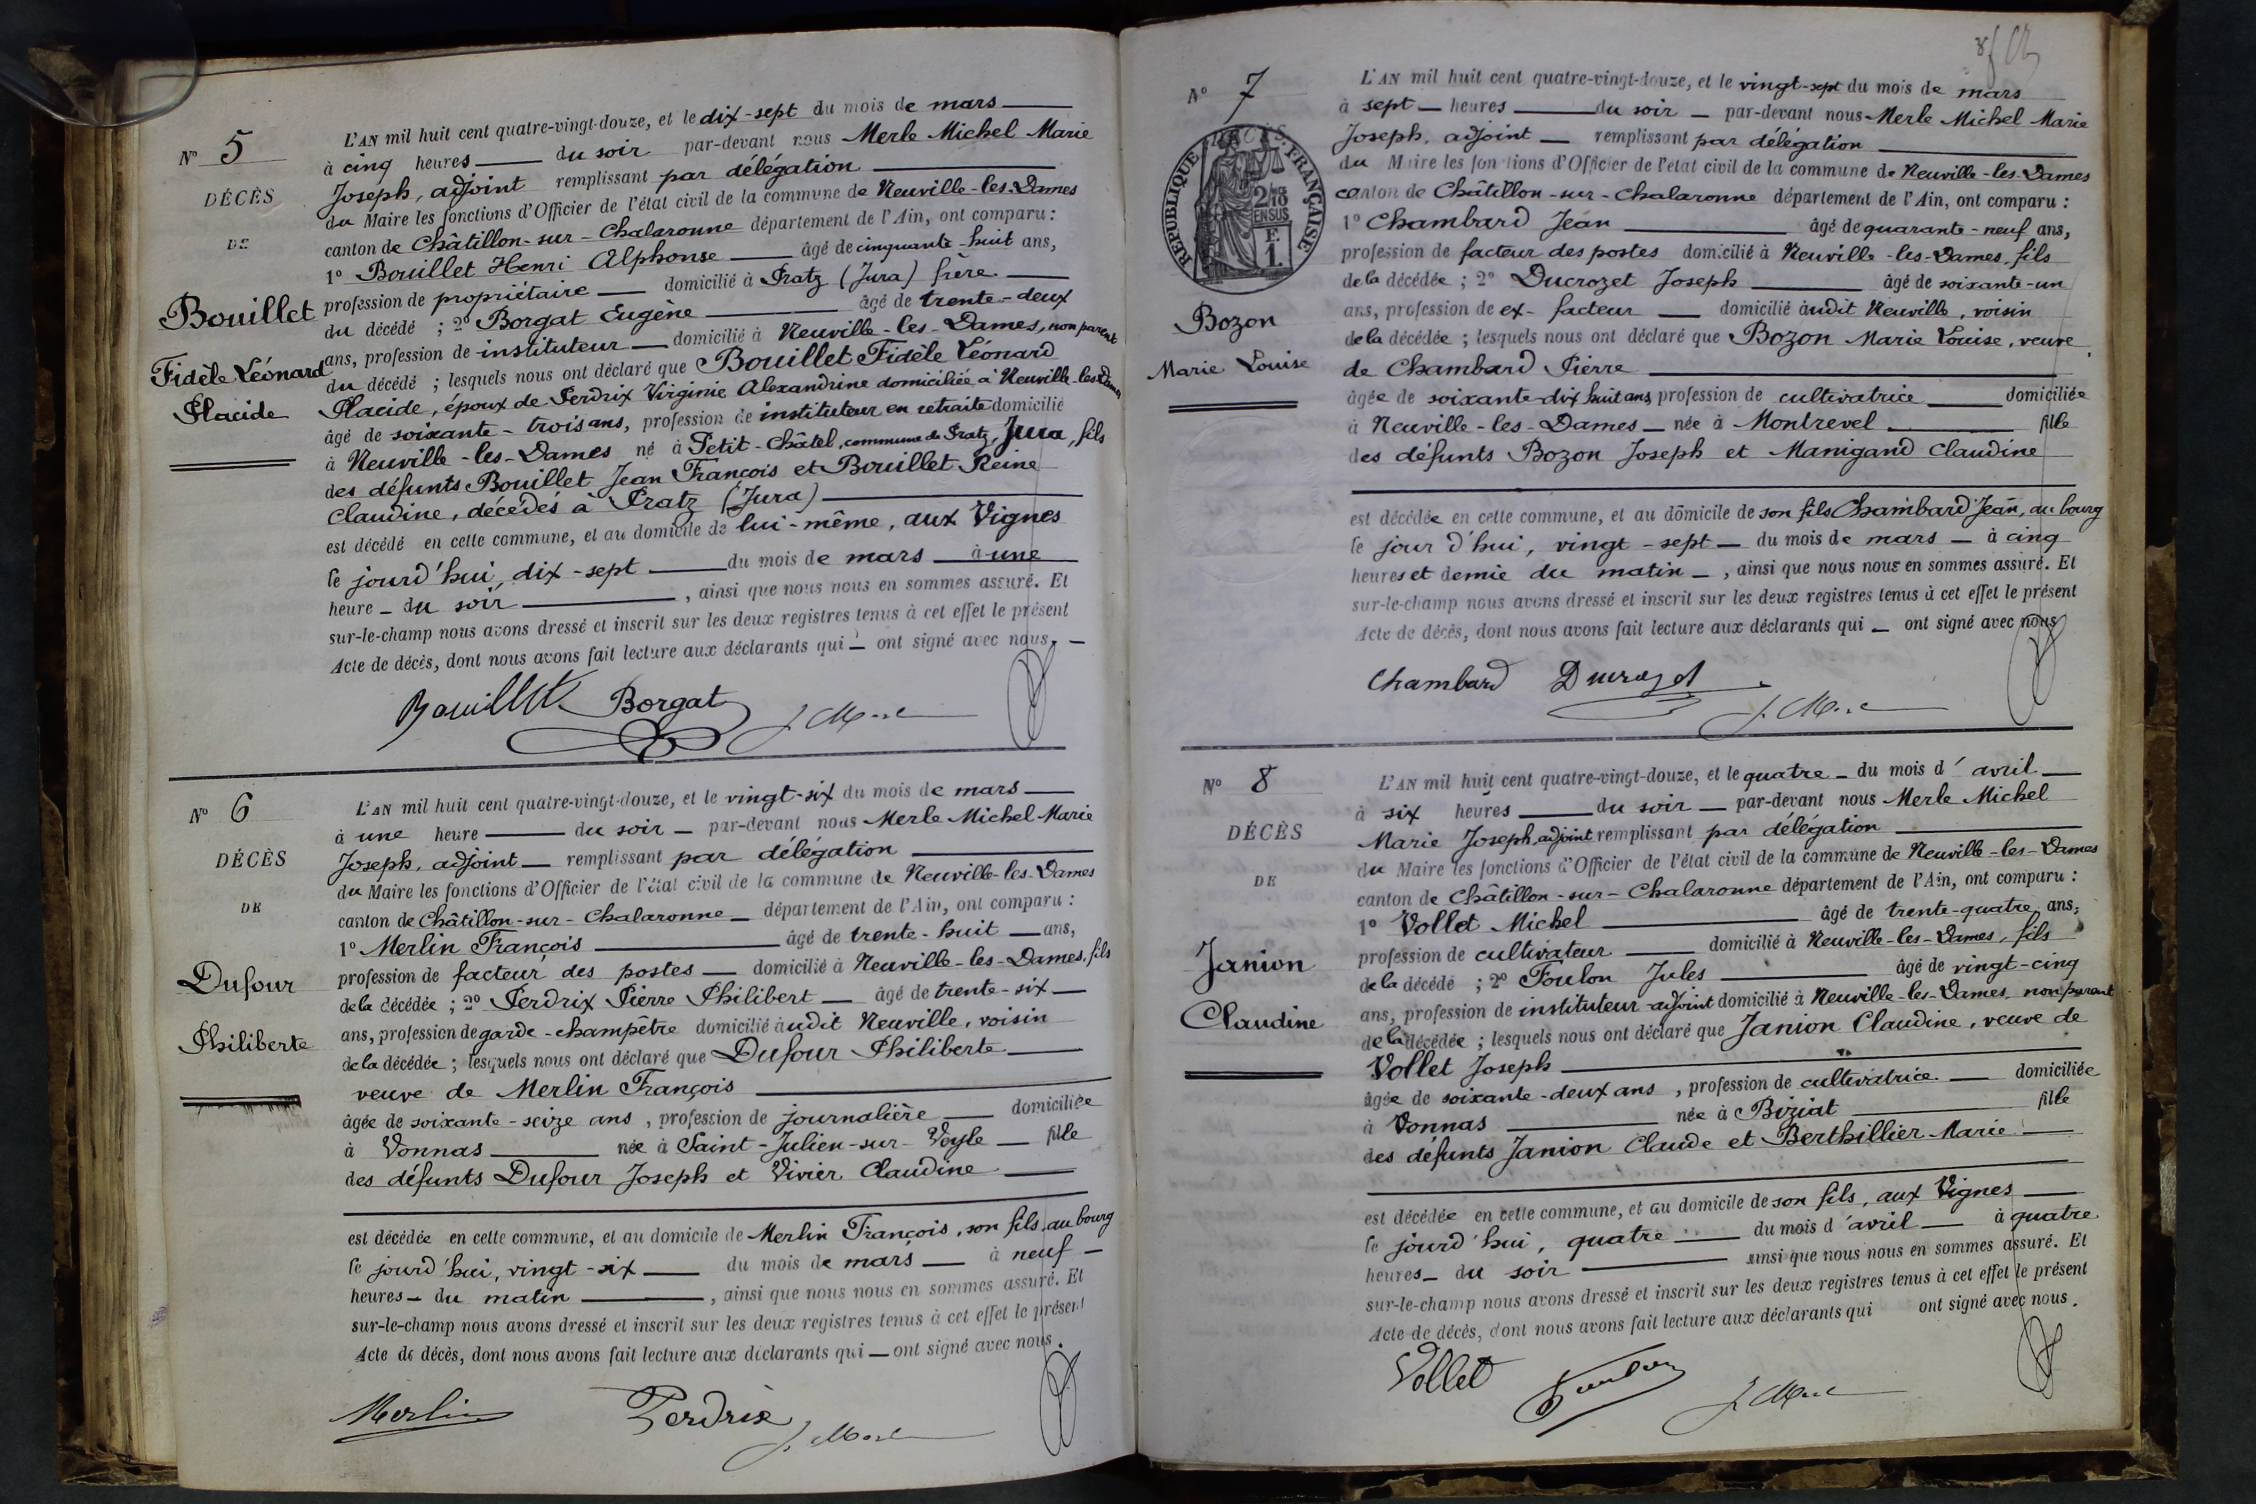 N° 5
DÉCÈS
DE
Bouillet
Fidèle Léonard
Placide
L'AN mil huit cent quatre-vingt-douze, et le dix-sept du mois de mars
à cinq heures du soir par-devant nous Merle Michel Marie
Joseph, adjoint remplissant par délégation
du Maire les fonctions d'Officier de l'état civil de la commune de Neuville-les-Dames
canton de Châtillon-sur-Chalaronne département de l'Ain, ont comparu :
1° Bouillet Henri Alphonse âgé de cinquante-huit ans,
profession de propriétaire domicilié à Pratz (Jura) frère
du décédé ; 2° Borgat Eugène âgé de trente-deux
ans, profession de instituteur domicilié à Neuville-les-Dames, non parent
du décédé ; lesquels nous ont déclaré que Bouillet Fidèle Léonard
Placide, époux de Perdrix Virginie Alexandrine domiciliée à Neuville-les-Dames
âgé de soixante-trois ans, profession de instituteur en retraite domicilié
à Neuville-les-Dames né à Petit-Châtel, commune de Pratz, Jura, fils
des défunts Bouillet Jean François et Bouillet Reine
Claudine, décédés à Pratz (Jura)
est décédé en cette commune, et au domicile de lui-même, aux Vignes
le jourd'hui, dix-sept du mois de mars à une
heure du soir, ainsi que nous nous en sommes assuré. Et
sur-le-champ nous avons dressé et inscrit sur les deux registres tenus à cet effet le présent
Acte de décès, dont nous avons fait lecture aux déclarants qui ont signé avec nous.
Bouillet Borgat J. Merle
N° 6
DÉCÈS
DE
Dufour
Philiberte
L'AN mil huit cent quatre-vingt-douze, et le vingt-six du mois de mars
à une heure du soir par-devant nous Merle Michel Marie
Joseph, adjoint remplissant par délégation
du Maire les fonctions d'Officier de l'état civil de la commune de Neuville-les-Dames
canton de Châtillon-sur-Chalaronne département de l'Ain, ont comparu :
1° Merlin François âgé de trente-huit ans,
profession de facteur des postes domicilié à Neuville-les-Dames, fils
de la décédée ; 2° Perdrix Pierre Philibert âgé de trente-six
ans, profession de garde-champêtre domicilié audit Neuville, voisin
de la décédée ; lesquels nous ont déclaré que Dufour Philiberte
veuve de Merlin François
âgée de soixante-seize ans, profession de journalière domiciliée
à Vonnas née à Saint-Julien-sur-Veyle fille
des défunts Dufour Joseph et Vivier Claudine
est décédée en cette commune, et au domicile de Merlin François, son fils, au bourg
le jourd'hui, vingt-six du mois de mars à neuf
heures du matin, ainsi que nous nous en sommes assuré. Et
sur-le-champ nous avons dressé et inscrit sur les deux registres tenus à cet effet le présent
Acte de décès, dont nous avons fait lecture aux déclarants qui ont signé avec nous.
Merlin Perdrix J. Merle
N° 7
RÉPUBLIQUE FRANÇAISE
2/10 EN SUS
Bozon
Marie Louise
L'AN mil huit cent quatre-vingt-douze, et le vingt-sept du mois de mars
à sept heures du soir par-devant nous Merle Michel Marie
Joseph, adjoint remplissant par délégation
du Maire les fonctions d'Officier de l'état civil de la commune de Neuville-les-Dames
canton de Châtillon-sur-Chalaronne département de l'Ain, ont comparu :
1° Chambard Jean âgé de quarante-neuf ans,
profession de facteur des postes domicilié à Neuville-les-Dames, fils
de la décédée ; 2° Ducrozet Joseph âgé de soixante-un
ans, profession de ex-facteur domicilié audit Neuville, voisin
de la décédée ; lesquels nous ont déclaré que Bozon Marie Louise, veuve
de Chambard Pierre
âgée de soixante-dix huit ans, profession de cultivatrice domiciliée
à Neuville-les-Dames née à Montrevel fille
des défunts Bozon Joseph et Manigand Claudine
est décédée en cette commune, et au domicile de son fils Chambard Jean, au bourg
le jour d'hui, vingt-sept du mois de mars à cinq
heures et demie du matin, ainsi que nous nous en sommes assuré. Et
sur-le-champ nous avons dressé et inscrit sur les deux registres tenus à cet effet le présent
Acte de décès, dont nous avons fait lecture aux déclarants qui ont signé avec nous
Chambard Ducrozet J. Merle
N° 8
DÉCÈS
DE
Janion
Claudine
L'AN mil huit cent quatre-vingt-douze, et le quatre du mois d'avril
à six heures du soir par-devant nous Merle Michel
Marie Joseph, adjoint remplissant par délégation
du Maire les fonctions d'Officier de l'état civil de la commune de Neuville-les-Dames
canton de Châtillon-sur-Chalaronne département de l'Ain, ont comparu :
1° Vollet Michel âgé de trente-quatre ans,
profession de cultivateur domicilié à Neuville-les-Dames, fils
de la décédé ; 2° Foulon Jules âgé de vingt-cinq
ans, profession de instituteur-adjoint domicilié à Neuville-les-Dames non parent
de la décédée ; lesquels nous ont déclaré que Janion Claudine, veuve de
Vollet Joseph
âgée de soixante-deux ans, profession de cultivatrice domiciliée
à Vonnas née à Biziat fille
des défunts Janion Claude et Berthillier Marie
est décédée en cette commune, et au domicile de son fils, aux Vignes
le jourd'hui, quatre du mois d'avril à quatre
heures du soir ainsi que nous nous en sommes assuré. Et
sur-le-champ nous avons dressé et inscrit sur les deux registres tenus à cet effet le présent
Acte de décès, dont nous avons fait lecture aux déclarants qui ont signé avec nous.
Vollet Foulon J. Merle